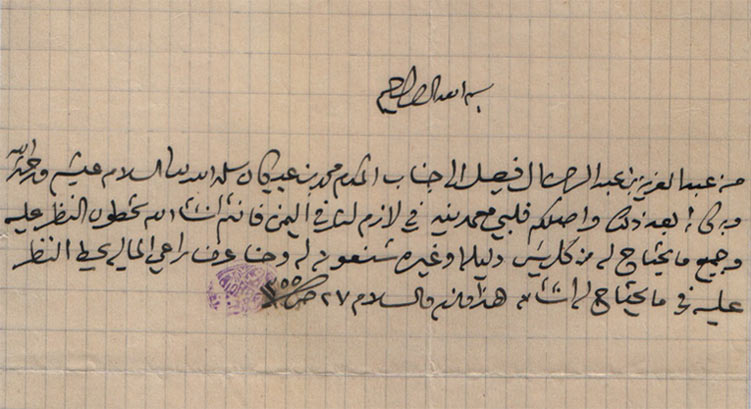 بسم الله الرحمن الرحيم
من عبد العزيز بن عبد الرحمن ال فيصل الى جناب المكرم محمد بن سلمه الله تعالى السلام عليكم ورحمة الله
وبركاته بعد ذلك واصلكم فلبي في لازم لنا في اليمن فانتم انشاء الله تحطون النظر عليه
وجميع ما يحتاج له من كل شيء دليله وغيره له وحنا راعي الماليه يحط النظر
عليه في ما يحتاج له انشاء الله هذا ما لزم والسلام ٢٧